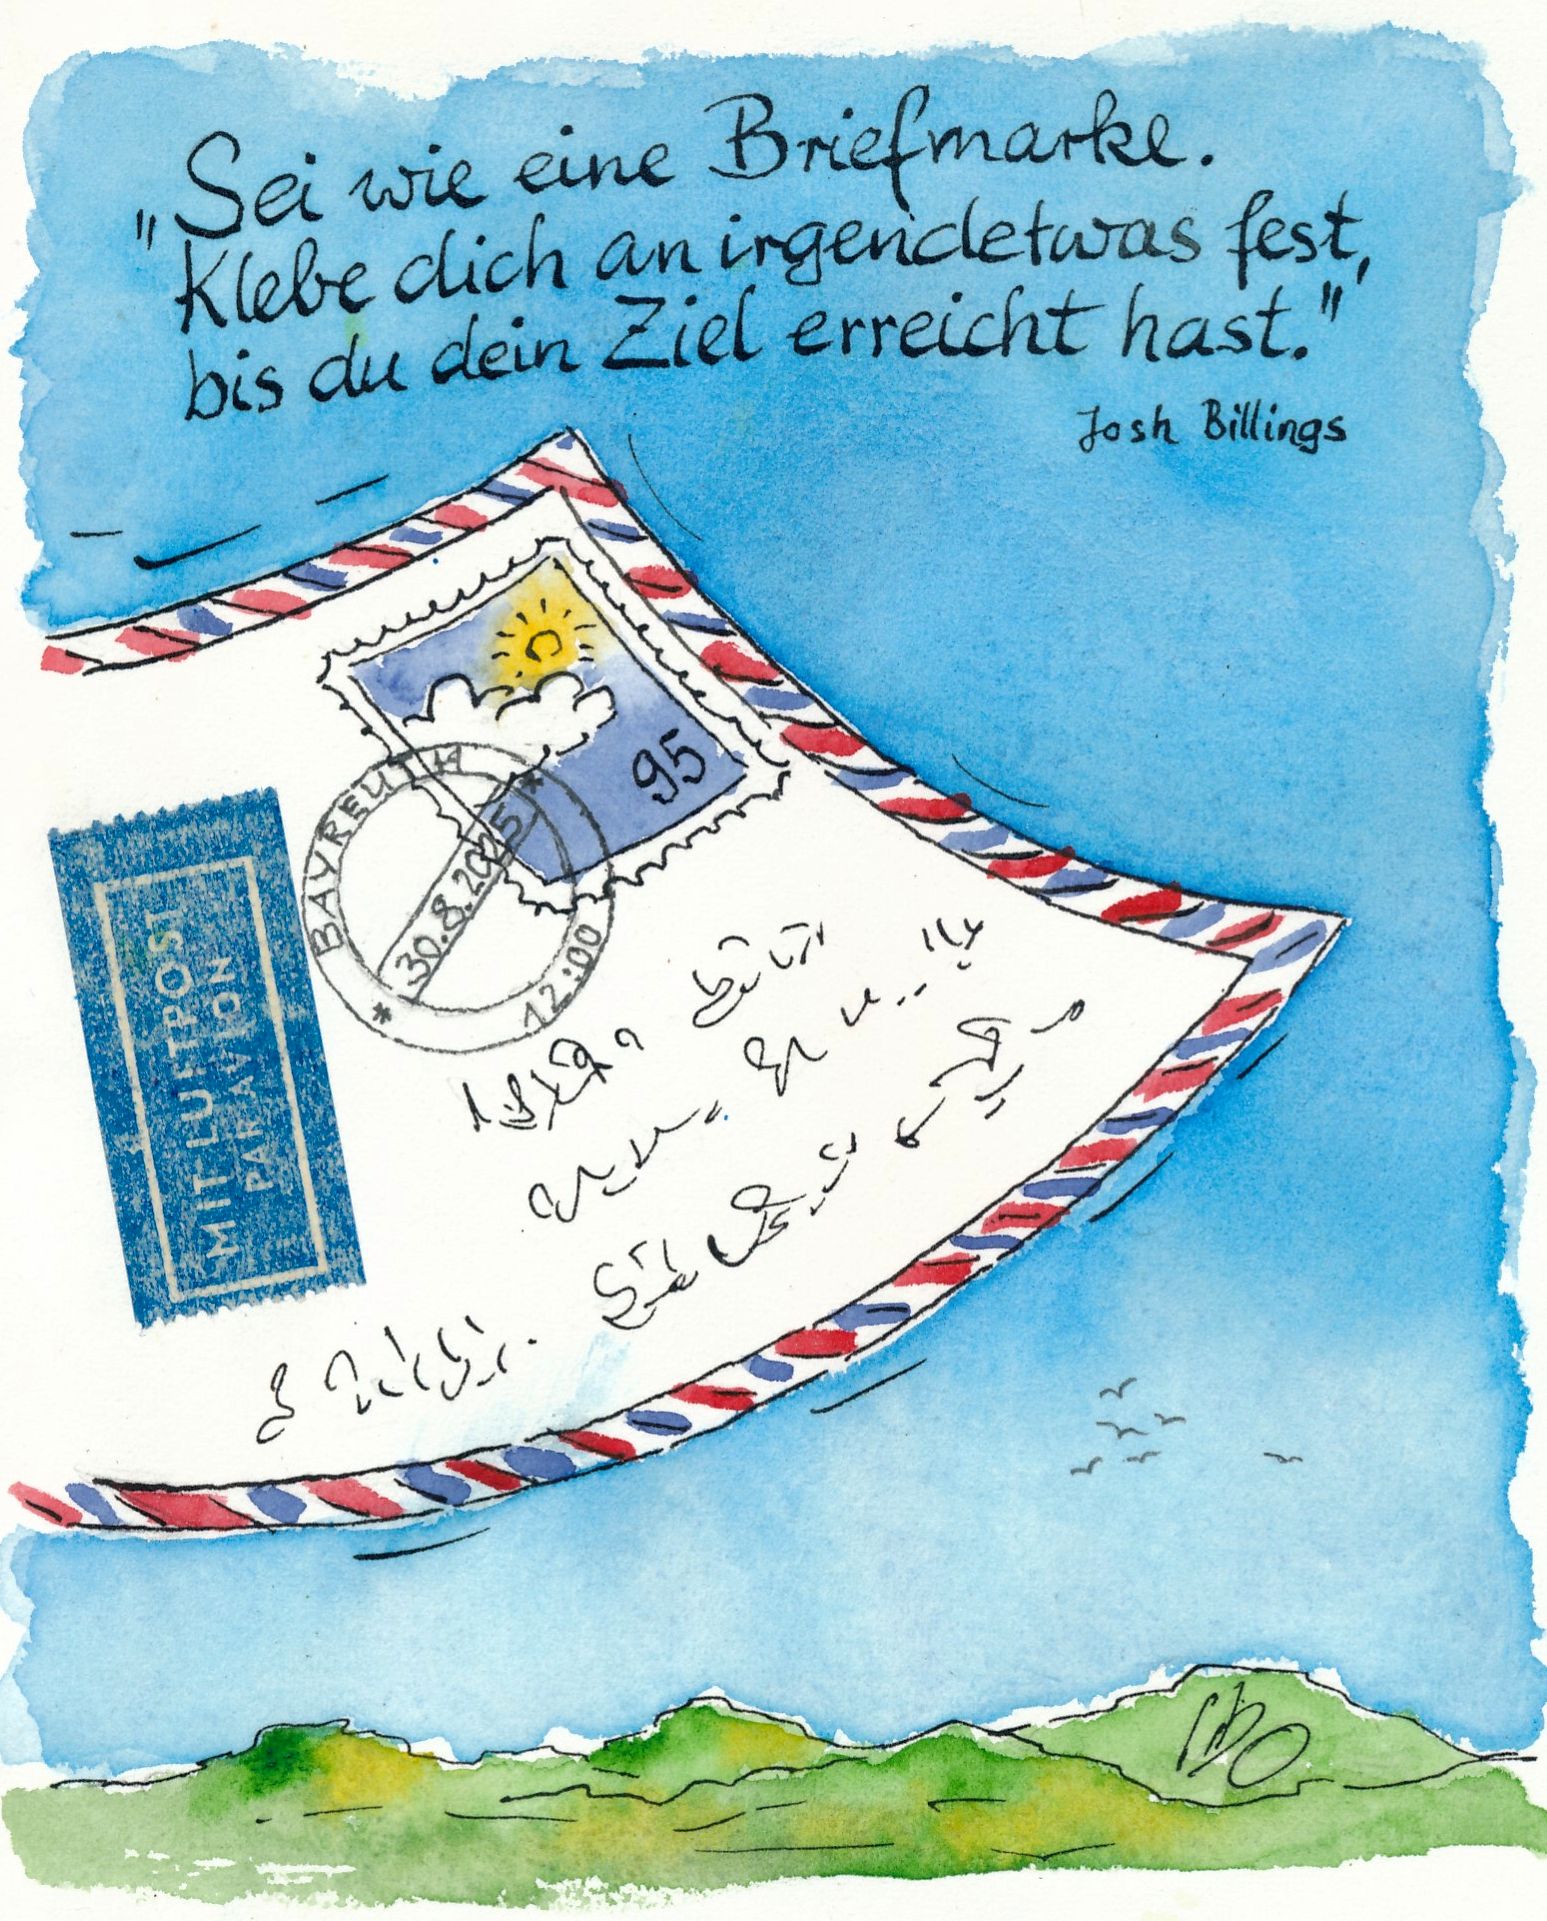 „Sei wie eine Briefmarke.
Klebe dich an irgendetwas fest,
bis du dein Ziel erreicht hast."
Josh Billings
95
BAYREUTH
* 30.8.2025 *
12:00
MIT LUFTPOST
PAR AVION